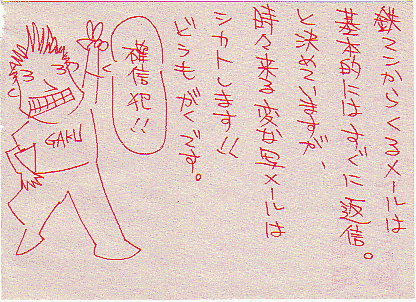 鉄マンからくるメールは
基本的にはすぐに返信。
と決めていますが、
時々来る変な写メールは
シカトします!!
どうもがくです。
確信犯!!
GAKU